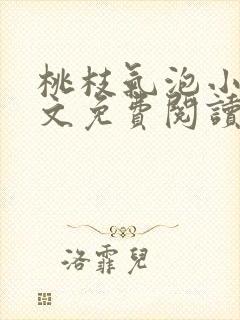 桃枝氣泡小
文免費閱讀
洛霏兒